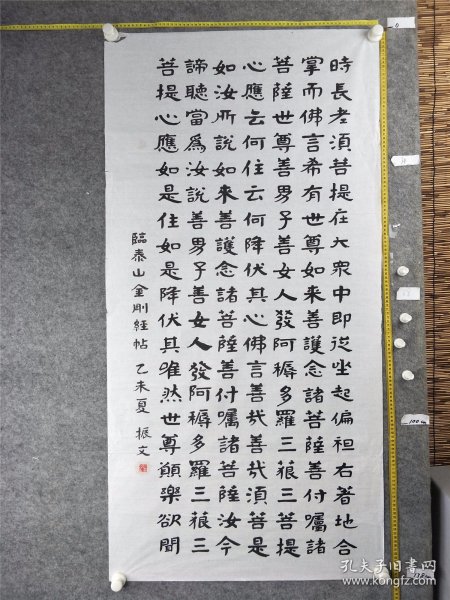 時長老須菩提在大衆中即從坐起偏袒右著地合
掌而佛言希有世尊如來善護念諸菩薩善付囑諸
菩薩世尊善男子善女人發阿耨多羅三藐三菩提
心應云何住云何降伏其心佛言善哉善哉須菩是
如汝所說如來善護念諸菩薩善付囑諸菩薩汝今
諦聽當為汝說善男子善女人發阿耨多羅三藐三
菩提心應如是住如是降伏其唯然世尊願樂欲聞
臨泰山金剛經帖 乙未夏 振文
100cm
孔夫子旧书网
kongfz.com